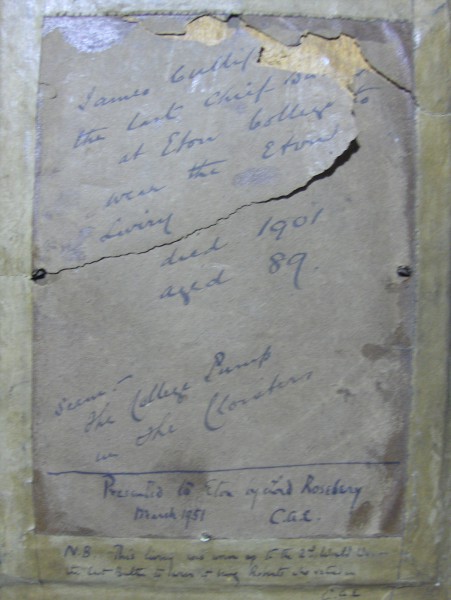 James
the last Chief
at Eton College to
wear the Eton
Livery
died 1901
aged 89.
Scene:-
The College Pump
in the Cloisters
Presented to Eton by Lord Rosebery
March 1951 C.A.E.
N.B. This livery was worn up to the 2nd World War
the last Butler to wear it being